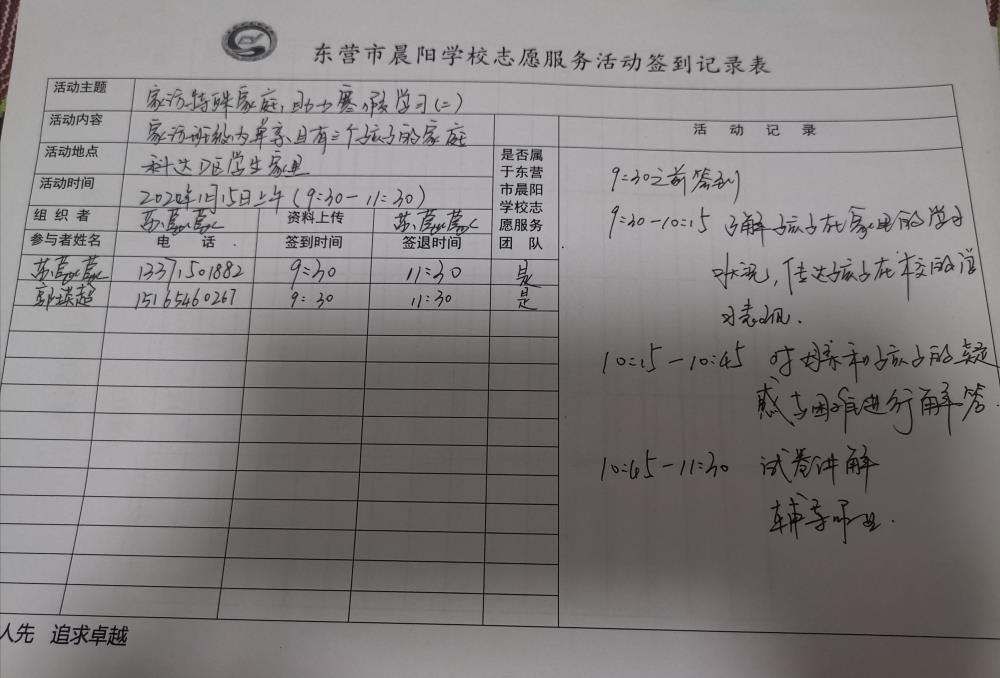 东营市晨阳学校志愿服务活动签到记录表
活动主题 家访特殊家庭,助力寒假学习(二)
活动内容 家访班级内单亲且有三个孩子的家庭
活动地点 科达D区学生家里
活动时间 2020年1月15日上午(9:30-11:30)
组织者 苏蔓蔓 资料上传 苏蔓蔓
是否属于东营市晨阳学校志愿服务团队
参与者姓名 电话 签到时间 签退时间
苏蔓蔓 13371501882 9:30 11:30 是
郭瑛超 15165460267 9:30 11:30 是
活动记录
9:30之前签到
9:30-10:15 了解孩子在家里的学习
状况,传达孩子在本校的学
习表现.
10:15-10:45 对母亲和孩子的疑
惑与困难进行解答.
10:45-11:30 试卷讲解
辅导作业.
人先 追求卓越